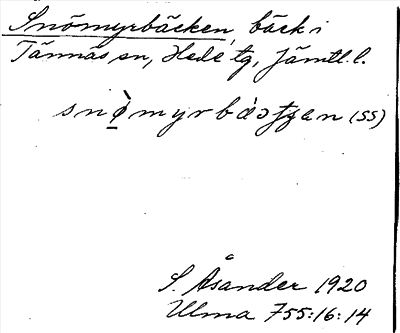 Snömyrbäcken, bäck i
Tännäs sn, Hede tg, Jämtl. l.
(SS)
S. Åsander 1920
Ulma 755:16:14